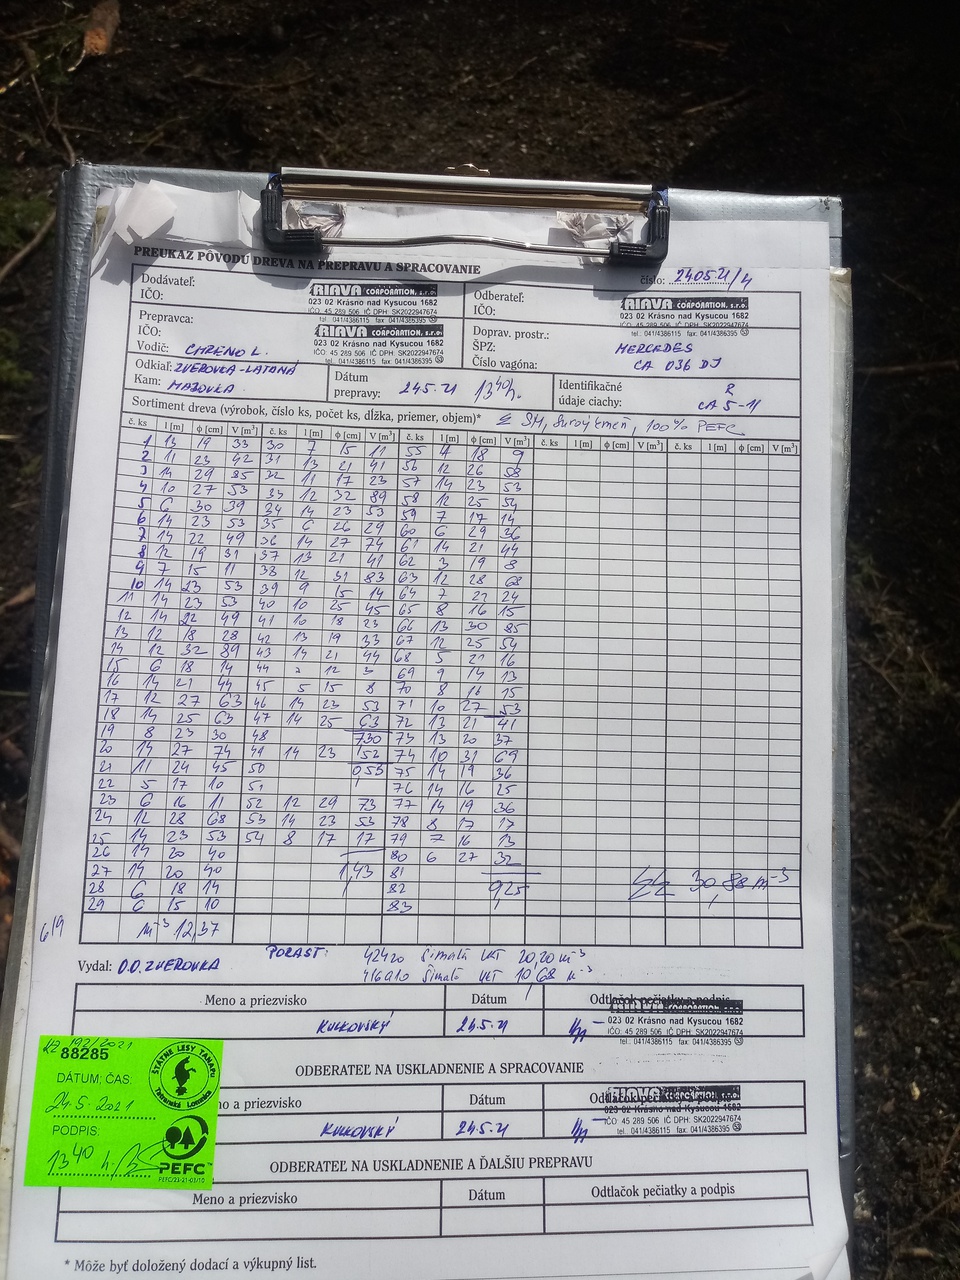 PREUKAZ PÔVODU DREVA NA PREPRAVU A SPRACOVANIE
číslo: 240521/4
Dodávateľ:
IČO:
RIAVA CORPORATION, s.r.o.
023 02 Krásno nad Kysucou 1682
IČO: 45 289 506 IČ DPH: SK2022947674
tel.: 041/4386115 fax: 041/4386395
Odberateľ:
IČO:
RIAVA CORPORATION, s.r.o.
023 02 Krásno nad Kysucou 1682
IČO: 45 289 506 IČ DPH: SK2022947674
tel.: 041/4386115 fax: 041/4386395
Prepravca:
IČO:
Vodič: CHRENO L.
RIAVA CORPORATION, s.r.o.
023 02 Krásno nad Kysucou 1682
IČO: 45 289 506 IČ DPH: SK2022947674
tel.: 041/4386115 fax: 041/4386395
Doprav. prostr.: MERCEDES
ŠPZ: CA 036 DJ
Číslo vagóna:
Odkiaľ: ZVEROVKA-LATANÁ
Kam: MAZOVKA
Dátum prepravy: 24.5.21 13 40 h.
Identifikačné údaje ciachy: R CA 5-11
Sortiment dreva (výrobok, číslo ks, počet ks, dĺžka, priemer, objem)* SM, surový kmeň, 100% PEFC
č. ks l [m] ϕ [cm] V [m³] č. ks l [m] ϕ [cm] V [m³] č. ks l [m] ϕ [cm] V [m³] č. ks l [m] ϕ [cm] V [m³] č. ks l [m] ϕ [cm] V [m³]
1 13 19 33 30 7 15 11 55 4 18 9
2 11 23 42 31 13 21 41 56 12 26 58
3 14 29 85 32 11 17 23 57 14 23 53
4 10 27 53 33 12 32 89 58 12 25 54
5 6 30 39 34 14 23 53 59 7 17 14
6 14 23 53 35 6 26 29 60 6 29 36
7 14 22 49 36 14 27 74 61 14 21 44
8 12 19 31 37 13 21 41 62 3 19 8
9 7 15 11 38 12 31 83 63 12 28 68
10 14 23 53 39 9 15 14 64 7 22 24
11 14 23 53 40 10 25 45 65 8 16 15
12 14 22 49 41 10 18 23 66 13 30 85
13 12 18 28 42 13 19 33 67 12 25 54
14 12 32 89 43 14 21 44 68 5 21 16
15 6 18 14 44 12 3 69 9 14 13
16 14 21 44 45 5 15 8 70 8 16 15
17 12 27 63 46 14 23 53 71 10 27 53
18 14 25 63 47 14 25 63 72 13 21 41
19 8 23 30 48 730 73 13 20 37
20 14 27 74 49 14 23 152 74 10 31 69
21 11 24 45 50 053 75 14 19 36
22 5 17 10 51 76 14 16 25
23 6 16 11 52 12 29 73 77 14 19 36
24 12 28 68 53 14 23 53 78 8 17 17
25 14 23 53 54 8 17 17 79 7 16 13
26 14 20 40 80 6 27 32
27 14 20 40 1,43 81
28 6 18 14 82 9,25
29 6 15 10 83
30,88 m³
m³ 12,37
Vydal: O.O. ZVEROVKA
PORAST: 42420 Šimalá VKT 20,20 m³
416a10 Šimalá VKT 10,68 m³
Meno a priezvisko Dátum Odtlačok pečiatky a podpis
KULKOVSKÝ 24.5.21
RIAVA CORPORATION, s.r.o.
023 02 Krásno nad Kysucou 1682
IČO: 45 289 506 IČ DPH: SK2022947674
tel.: 041/4386115 fax: 041/4386395
ODBERATEĽ NA USKLADNENIE A SPRACOVANIE
no a priezvisko Dátum Odtlačok pečiatky a podpis
KULKOVSKÝ 24.5.21
RIAVA CORPORATION, s.r.o.
023 02 Krásno nad Kysucou 1682
IČO: 45 289 506 IČ DPH: SK2022947674
tel.: 041/4386115 fax: 041/4386395
ODBERATEĽ NA USKLADNENIE A ĎALŠIU PREPRAVU
Meno a priezvisko Dátum Odtlačok pečiatky a podpis
* Môže byť doložený dodací a výkupný list.
192/2021
88285
DÁTUM; ČAS:
24.5.2021
PODPIS:
13 40 h.
ŠTÁTNE LESY TANAPU
Tatranská Lomnica
PEFC
PEFC/23-21-03/10